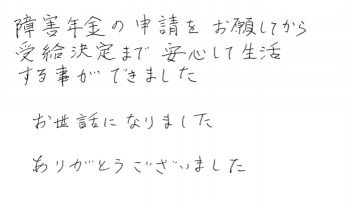 障害年金の申請をお願してから
受給決定まで安心して生活
する事ができました
お世話になりました
ありがとうございました